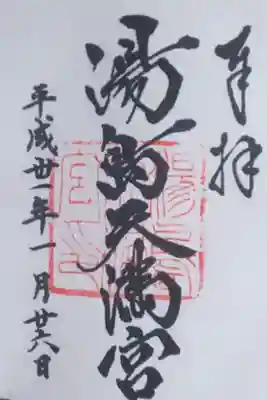 奉拝
湯島天満宮
平成卅一年一月廿六日